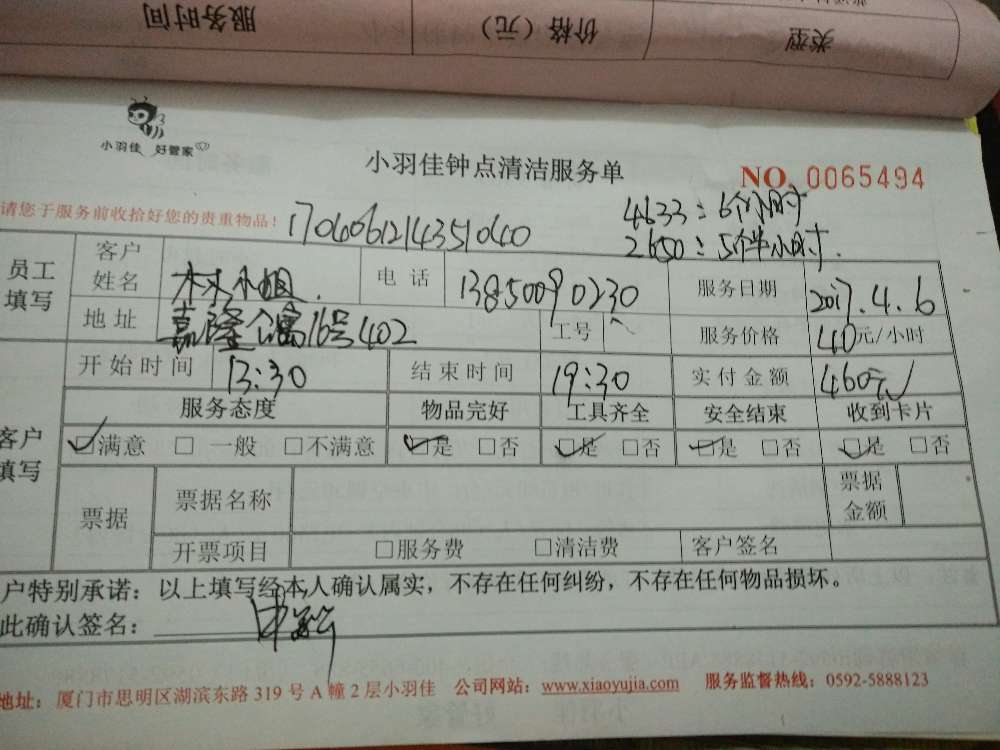 服务时间
价格（元）
类型
小羽佳 好管家
小羽佳钟点清洁服务单
NO. 0065494
请您于服务前收拾好您的贵重物品！
1704061214351040
4633：6个小时
2650：5个半小时.
员工填写
客户姓名 林小姐. 电话 13850090230 服务日期 2017.4.6
地址 嘉隆公寓16号402 工号 服务价格 40元/小时
开始时间 13:30 结束时间 19:30 实付金额 460元
客户填写
服务态度 物品完好 工具齐全 安全结束 收到卡片
☑满意 □ 一般 □不满意 ☑是 □否 ☑是 □否 ☑是 □否 ☑是 □否
票据 票据名称 票据金额
开票项目 □服务费 □清洁费 客户签名
户特别承诺：以上填写经本人确认属实，不存在任何纠纷，不存在任何物品损坏。
此确认签名：
地址：厦门市思明区湖滨东路 319 号 A 幢 2 层小羽佳 公司网站：www.xiaoyujia.com 服务监督热线：0592-5888123